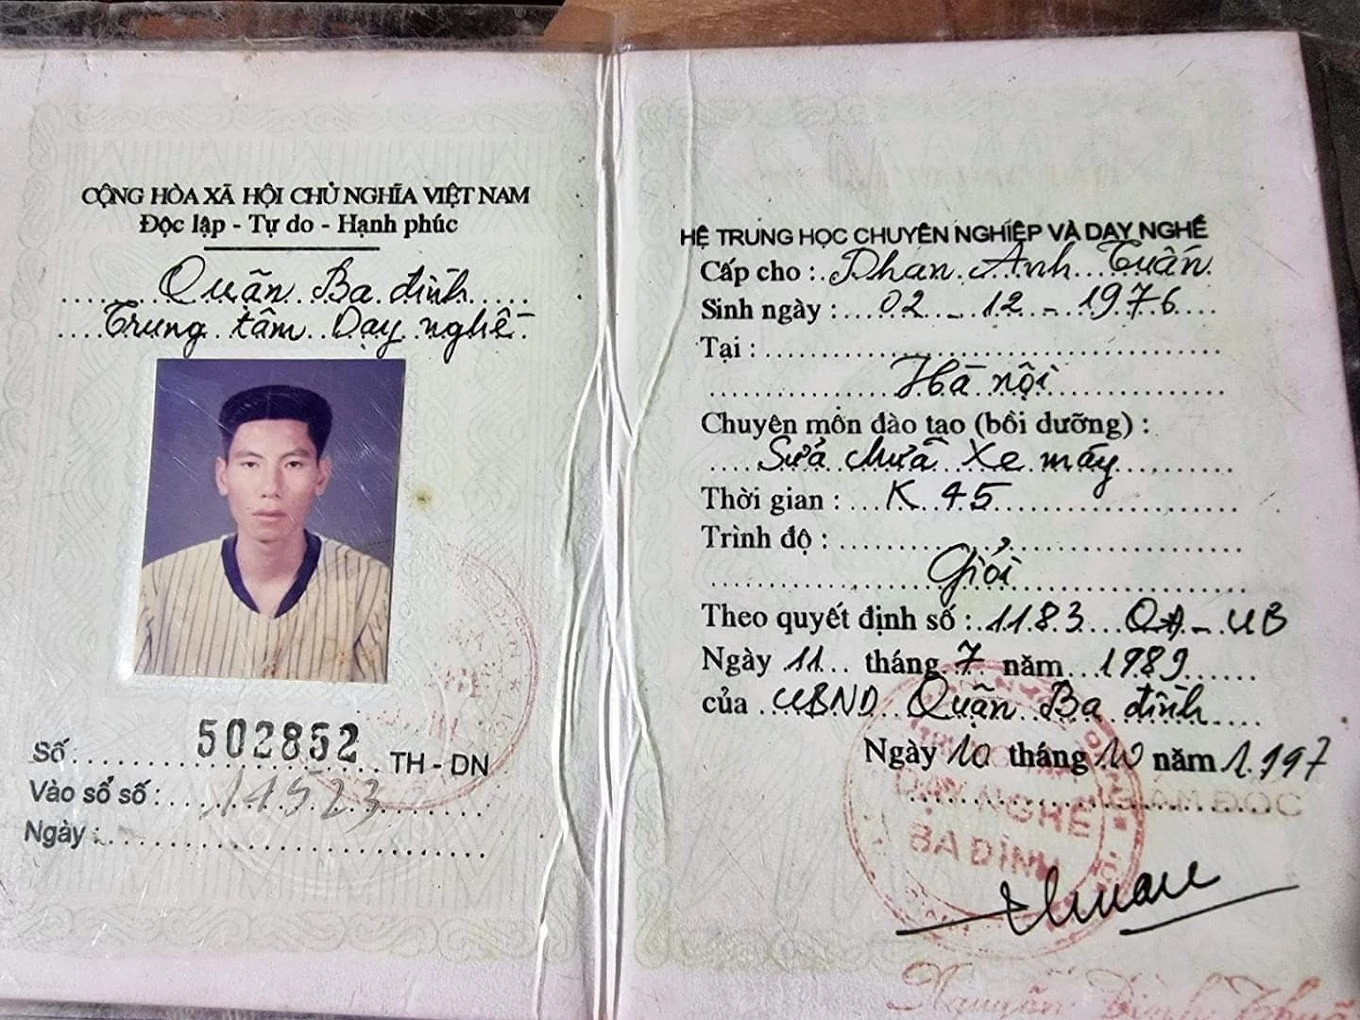 CỘNG HÒA XÃ HỘI CHỦ NGHĨA VIỆT NAM
Độc lập - Tự do - Hạnh phúc
Quận Ba đình
Trung tâm Dạy nghề
Số: 502852 TH - DN
Vào sổ số: 11523
Ngày:
HỆ TRUNG HỌC CHUYÊN NGHIỆP VÀ DẠY NGHỀ
Cấp cho: Phan Anh Tuấn
Sinh ngày: 02 - 12 - 1976
Tại:
Hà nội
Chuyên môn đào tạo (bồi dưỡng):
Sửa chữa Xe máy
Thời gian: K 45
Trình độ:
Giỏi
Theo quyết định số: 1183 QĐ - UB
Ngày 11 tháng 7 năm 1989
của UBND Quận Ba đình
Ngày 10 tháng 10 năm 1997
GIÁM ĐỐC
DẠY NGHỀ
BA ĐÌNH
Nguyễn Đình